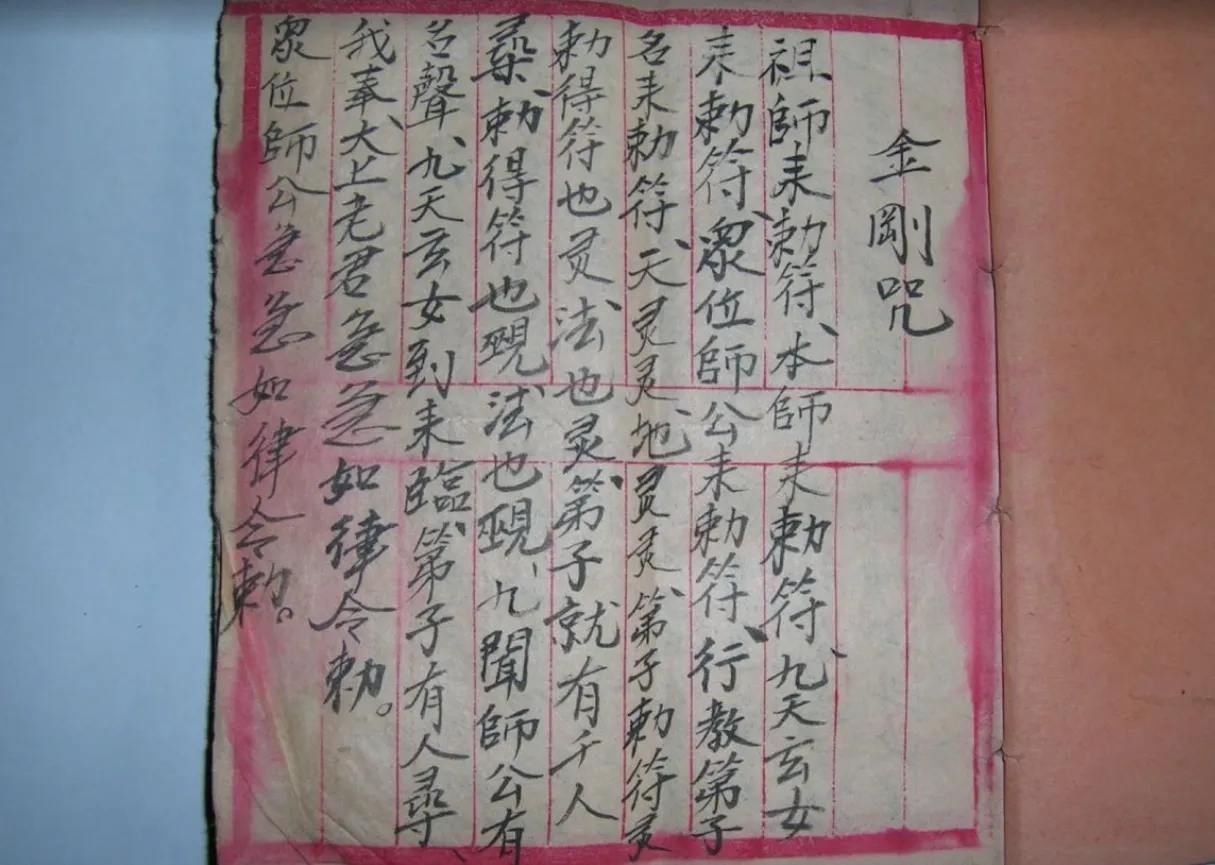 金剛咒
祖師来勅符、本師来勅符、九天玄女
来勅符、眾位師公来勅符、行教第子
名来勅符、天灵灵、地灵灵、第子勅符灵
勅得符也灵法也灵、第子就有千人
勅得符也現、法也現、九聞師公有
名聲、九天玄女到来臨、第子有人尋、
我奉大上老君急急如律令勅。
眾位師公急急如律令勅。